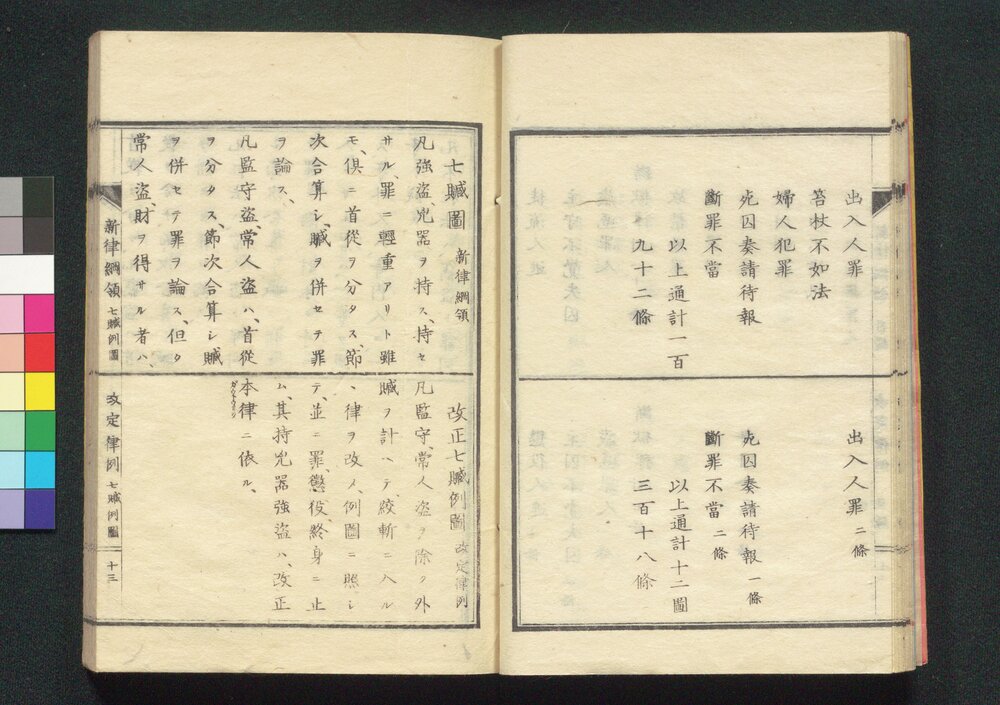 出入人罪
笞杖不如法
婦人犯罪
死囚奏請待報
斷罪不當
以上通計一百
九十二條
出入人罪 二條
死囚奏請待報 一條
斷罪不當 二條
以上通計十二圖
三百十八條
七贓圖 新律綱領
凡強盜、兇器ヲ持ス、持セ
サル、罪ニ輕重アリト雖
モ、倶ニ首從ヲ分タス、節
次合算シ、贓ヲ併セテ罪
ヲ論ス、
凡監守盜、常人盜ハ、首從
ヲ分タス、節次合算シ贓
ヲ併セテ罪ヲ論ス、但タ
常人盜、財ヲ得サル者ハ、
改正七贓例圖 改定律例
凡監守、常人盜ヲ除ク外
贓ヲ計ヘテ、絞斬ニ入ル
、律ヲ改メ、例圖ニ照シ
テ、並ニ罪、懲役終身ニ止
ム、其持兇器強盜ハ、改正
本律ニ依ル、
新律綱領 七贓例圖
改定律例 七贓例圖
十三